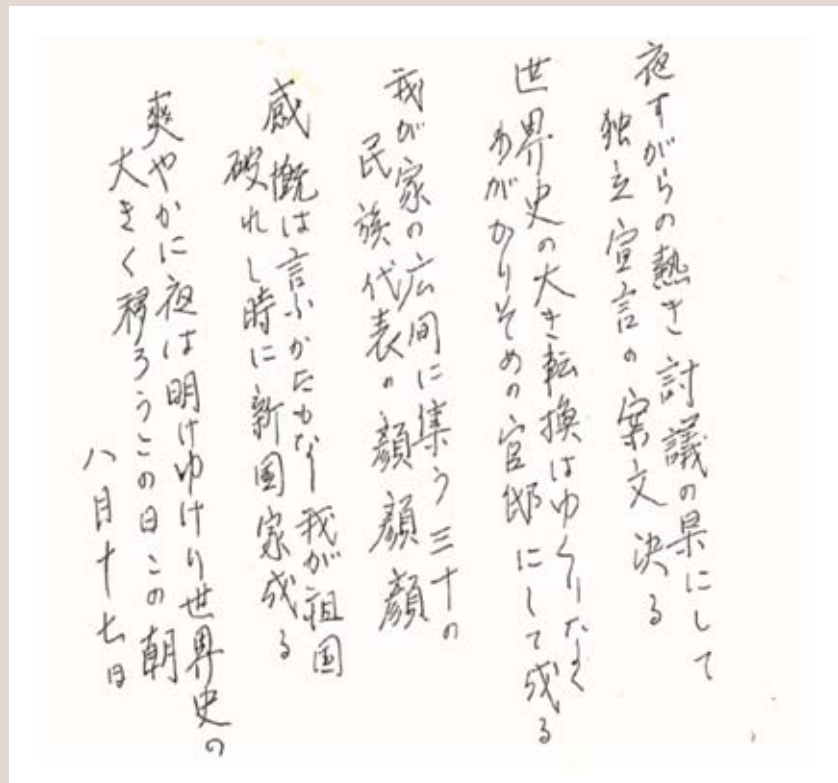 夜すがらの熱き討議の果にして
独立宣言の案文決る
世界史の大き転換はゆくりなく
わがかりそめの官邸にして成る
我が家の広間に集う三十の
民族代表の顔顔顔
感慨は言ふかたもなし我が祖国
破れし時に新国家成る
爽やかに夜は明けゆけり世界史の
大きく移ろうこの日この朝
八月十七日